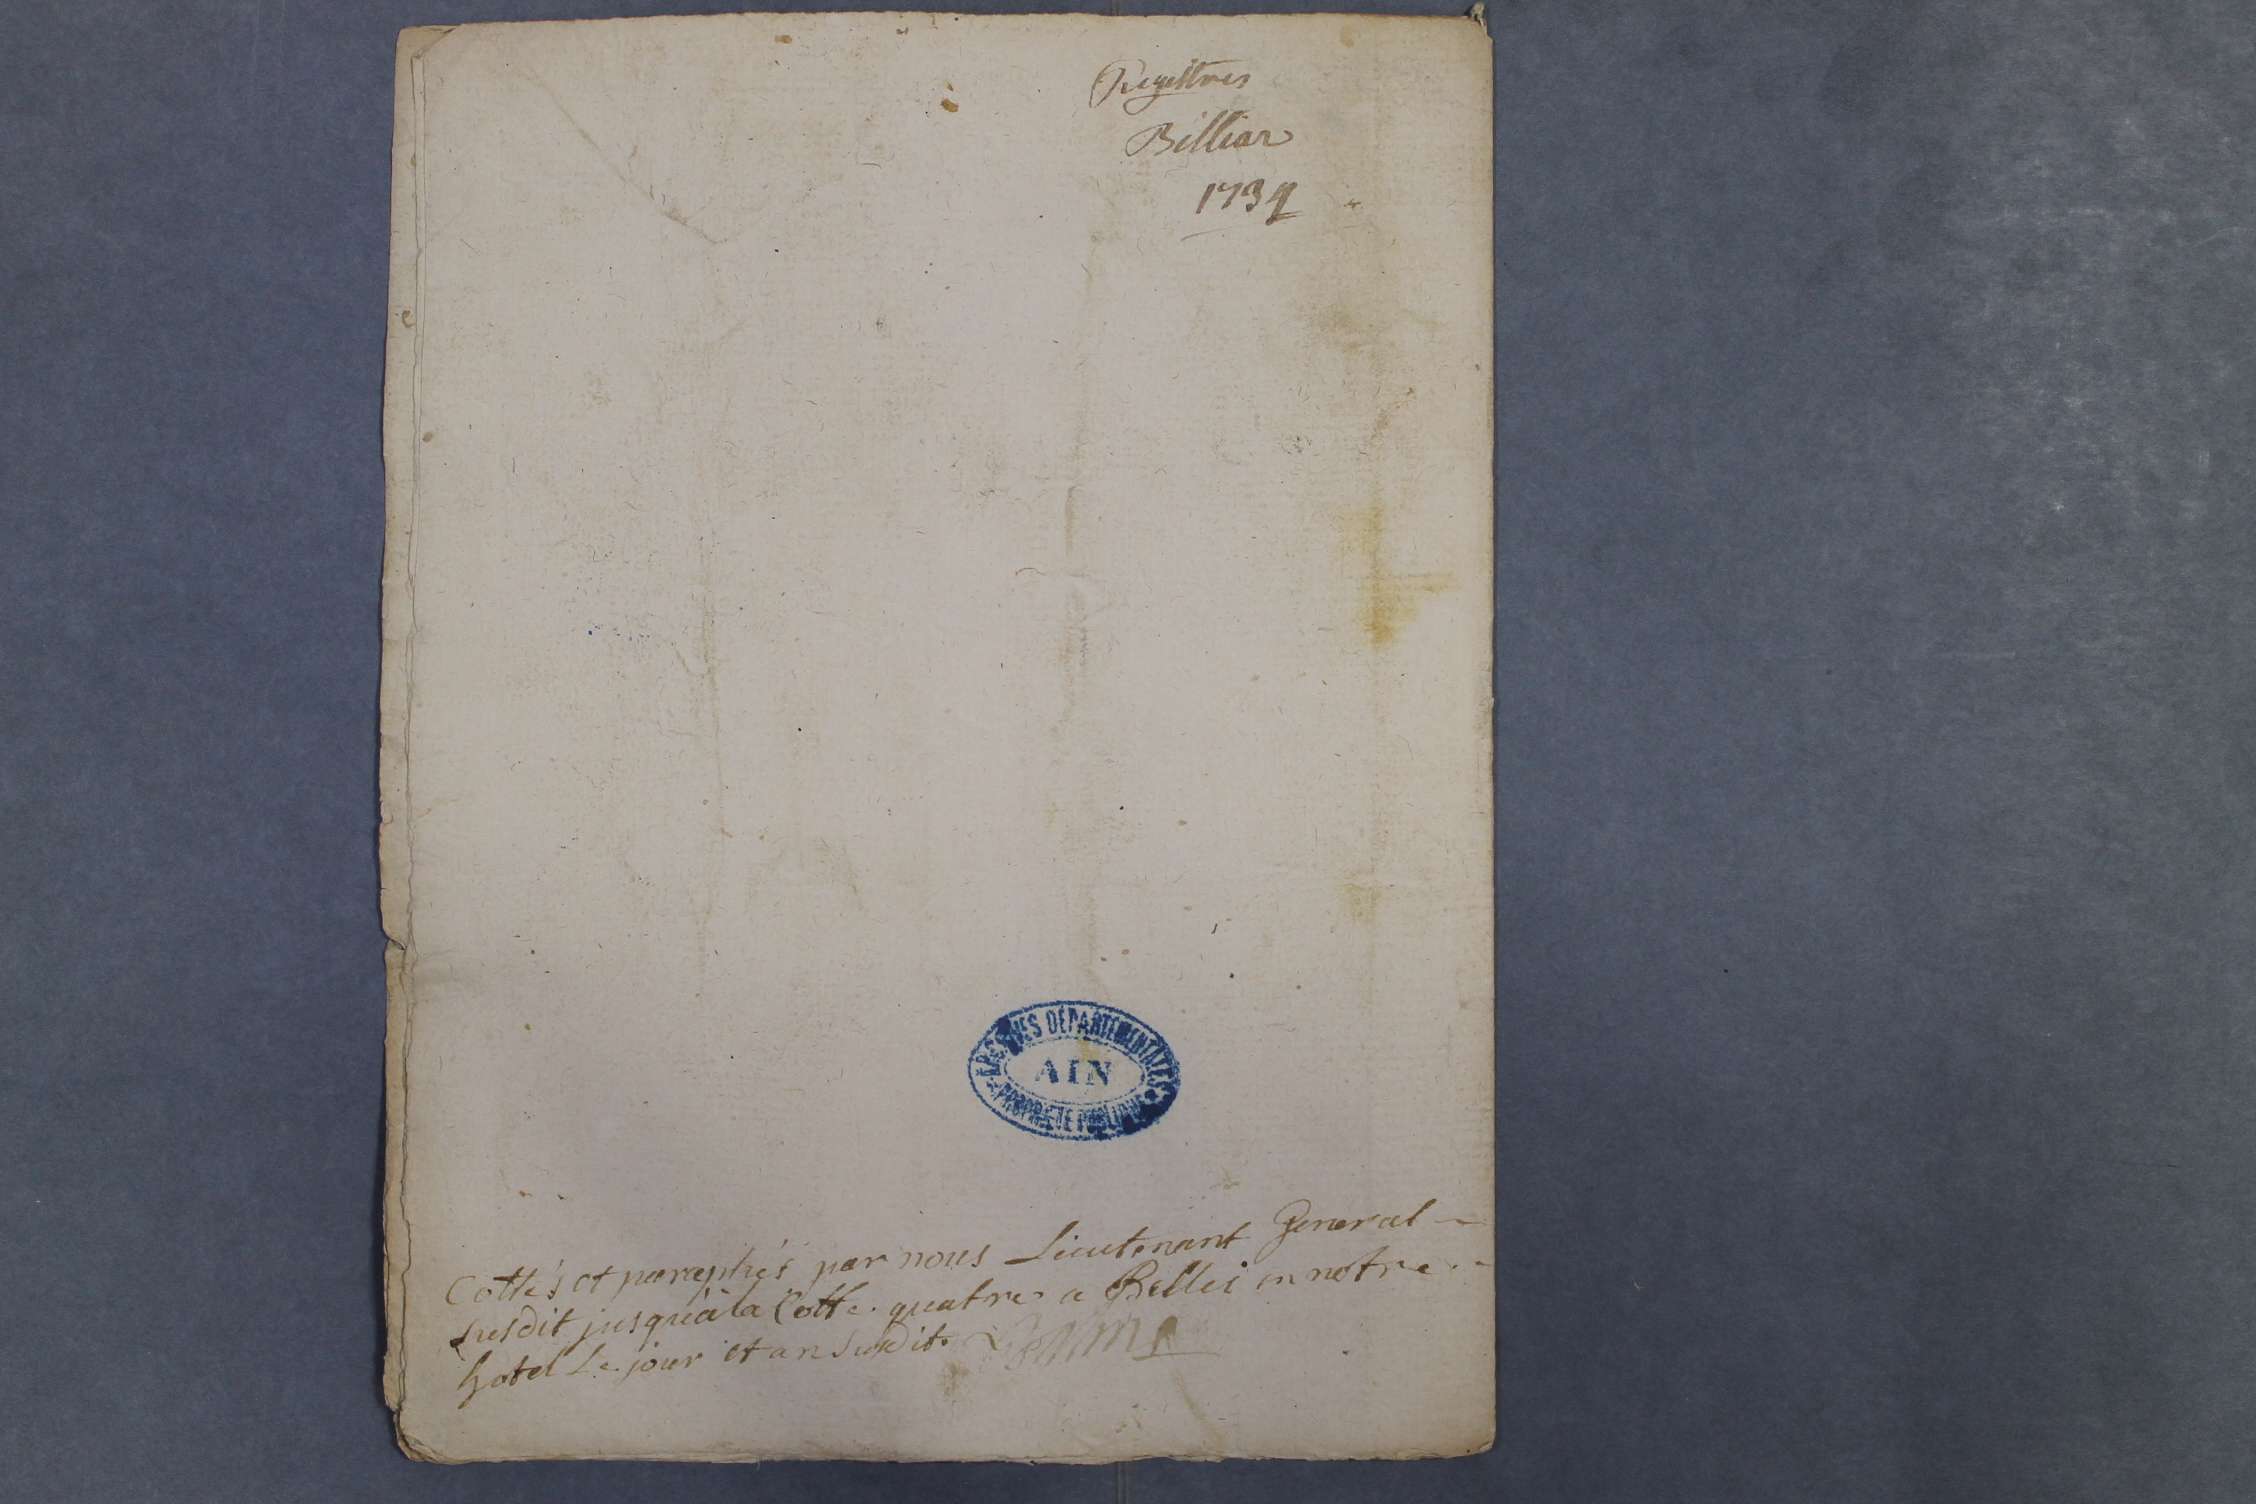 Registres
Billiar
1734
ARCHIVES DÉPARTEMENTALES
AIN
PROPRIÉTÉ PUBLIQUE
Cottés et paraphés par nous Lieutenant General
susdit jusqu'à la Cotte quatre a Bellei en notre
hotel Le jour et an susdit